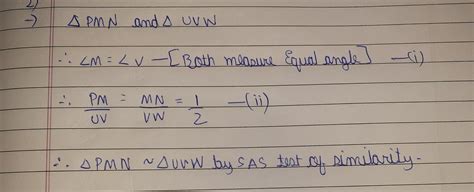 2)
→ Δ PMN and Δ UVW
∴ ∠M = ∠V — [Both measure Equal angle] —(i)
∴ PM/UV = MN/VW = 1/2 —(ii)
∴ ΔPMN ~ ΔUVW by SAS test of similarity.